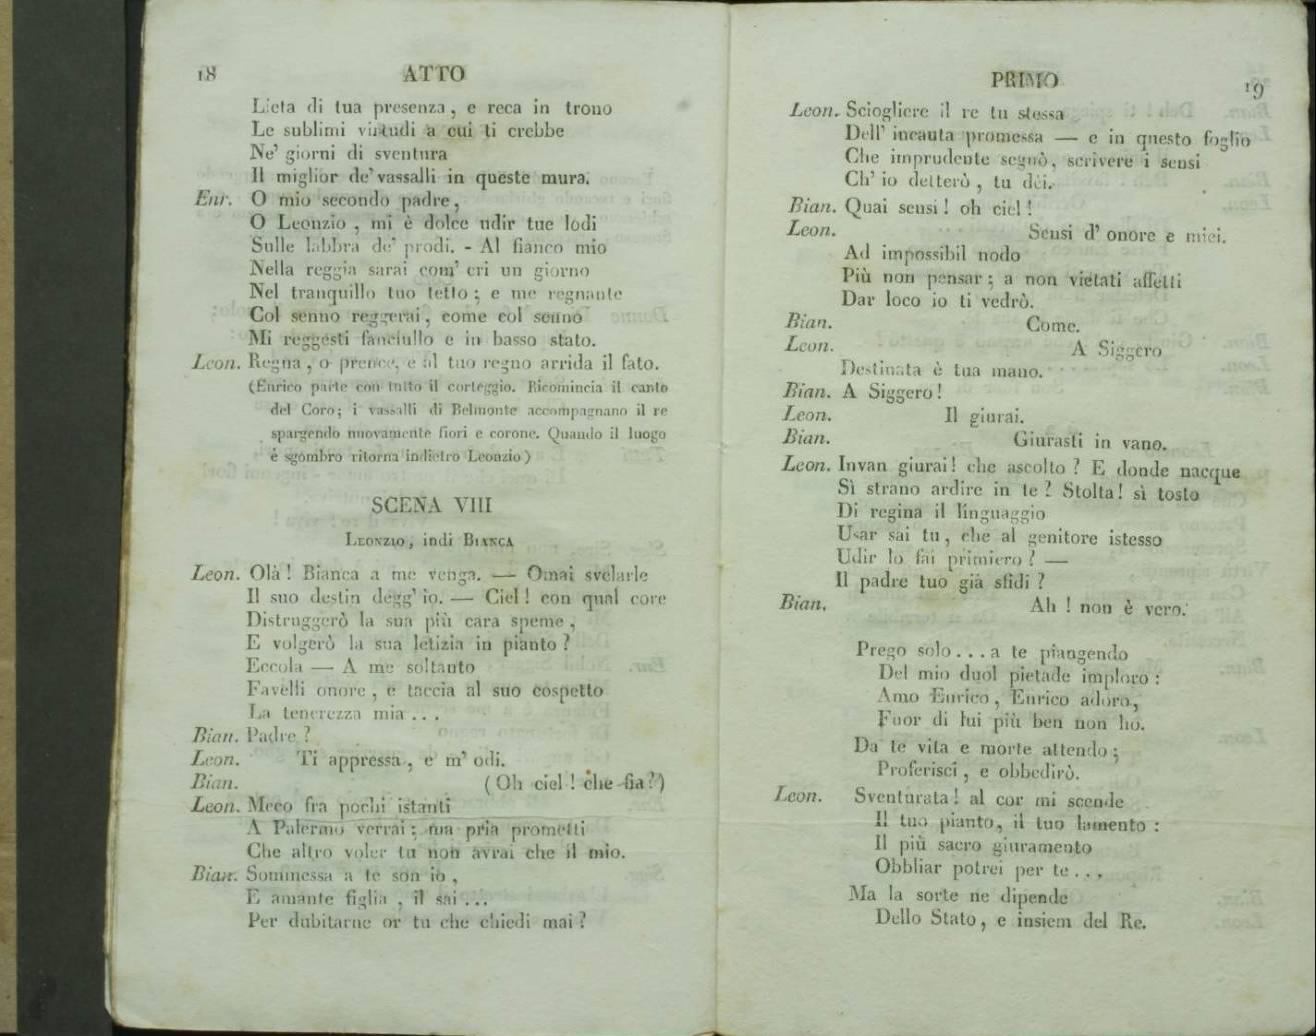 18 ATTO
Lieta di tua presenza, e reca in trono
Le sublimi virtudi a cui ti crebbe
Ne' giorni di sventura
Il miglior de' vassalli in queste mura.
Enr. O mio secondo padre,
O Leonzio, mi è dolce udir tue lodi
Sulle labbra de' prodi. - Al fianco mio
Nella reggia sarai com' eri un giorno
Nel tranquillo tuo tetto; e me regnante
Col senno reggerai, come col senno
Mi reggesti fanciullo e in basso stato.
Leon. Regna, o prence, e al tuo regno arrida il fato.
(Enrico parte con tutto il corteggio. Ricomincia il canto
del Coro; i vassalli di Belmonte accompagnano il re
spargendo nuovamente fiori e corone. Quando il luogo
è sgombro ritorna indietro Leonzio)
SCENA VIII
Leonzio, indi Bianca
Leon. Olà! Bianca a me venga. — Omai svelarle
Il suo destin degg' io. — Ciel! con qual core
Distruggerò la sua più cara speme,
E volgerò la sua letizia in pianto?
Eccola — A me soltanto
Favelli onore, e taccia al suo cospetto
La tenerezza mia...
Bian. Padre?
Leon. Ti appressa, e m' odi.
Bian. (Oh ciel! che fia?)
Leon. Meco fra pochi istanti
A Palermo verrai; ma pria prometti
Che altro voler tu non avrai che il mio.
Bian. Sommessa a te son io,
E amante figlia, il sai...
Per dubitarne or tu che chiedi mai?
PRIMO 19
Leon. Sciogliere il re tu stessa
Dell' incauta promessa — e in questo foglio
Che imprudente segnò, scrivere i sensi
Ch' io detterò, tu dêi.
Bian. Quai sensi! oh ciel!
Leon. Sensi d' onore e miei.
Ad impossibil nodo
Più non pensar; a non vietati affetti
Dar loco io ti vedrò.
Bian. Come.
Leon. A Siggero
Destinata è tua mano.
Bian. A Siggero!
Leon. Il giurai.
Bian. Giurasti in vano.
Leon. Invan giurai! che ascolto? E donde nacque
Sì strano ardire in te? Stolta! sì tosto
Di regina il linguaggio
Usar sai tu, che al genitore istesso
Udir lo fai primiero? —
Il padre tuo già sfidi?
Bian. Ah! non è vero.
Prego solo... a te piangendo
Del mio duol pietade imploro:
Amo Enrico, Enrico adoro,
Fuor di lui più ben non ho.
Da te vita e morte attendo;
Proferisci, e obbedirò.
Leon. Sventurata! al cor mi scende
Il tuo pianto, il tuo lamento:
Il più sacro giuramento
Obbliar potrei per te...
Ma la sorte ne dipende
Dello Stato, e insiem del Re.